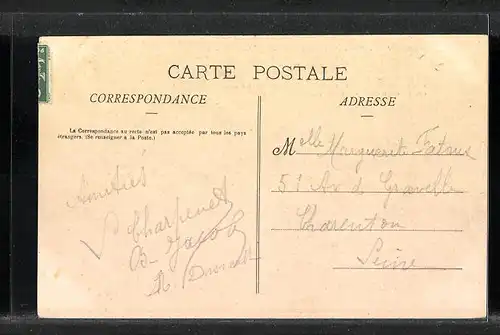 CARTE POSTALE
CORRESPONDANCE
ADRESSE
La Correspondance au recto n'est pas acceptée par tous les pays
étrangers. (Se renseigner à la Poste.)
Melle Marguerite
51 Av d Gravelle
Charenton
Seine
Amitiés